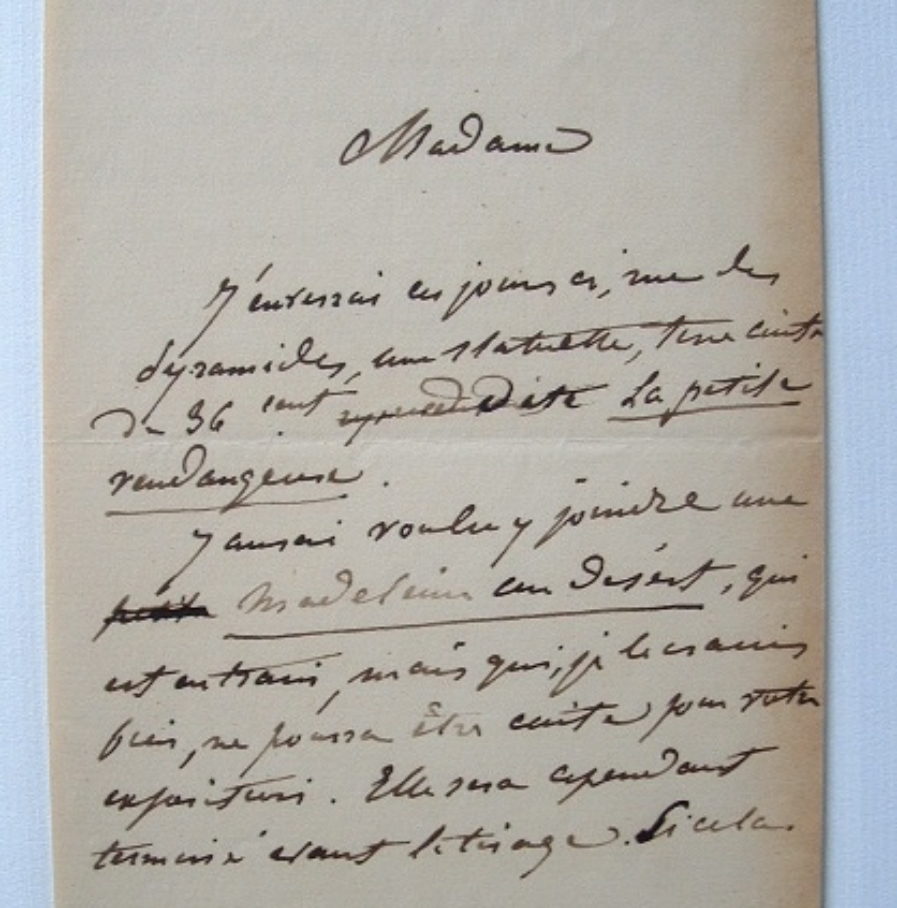 Madame
J'enverrai ces jours ci, rue des
pyramides, une statuette, terre cuite
de 36 cent. dite La petite
vendangeuse.
J'aurai voulu y joindre une
petite Madeleine au désert, qui
est en train, mais qui, je le crains
bien, ne pourra être cuite pour votre
exposition. Elle sera cependant
terminé avant le tirage. Si cela